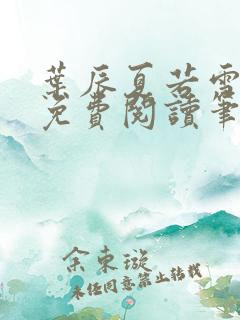 葉辰夏若雪
免費閱讀筆
余東璇
未經同意禁止轉載